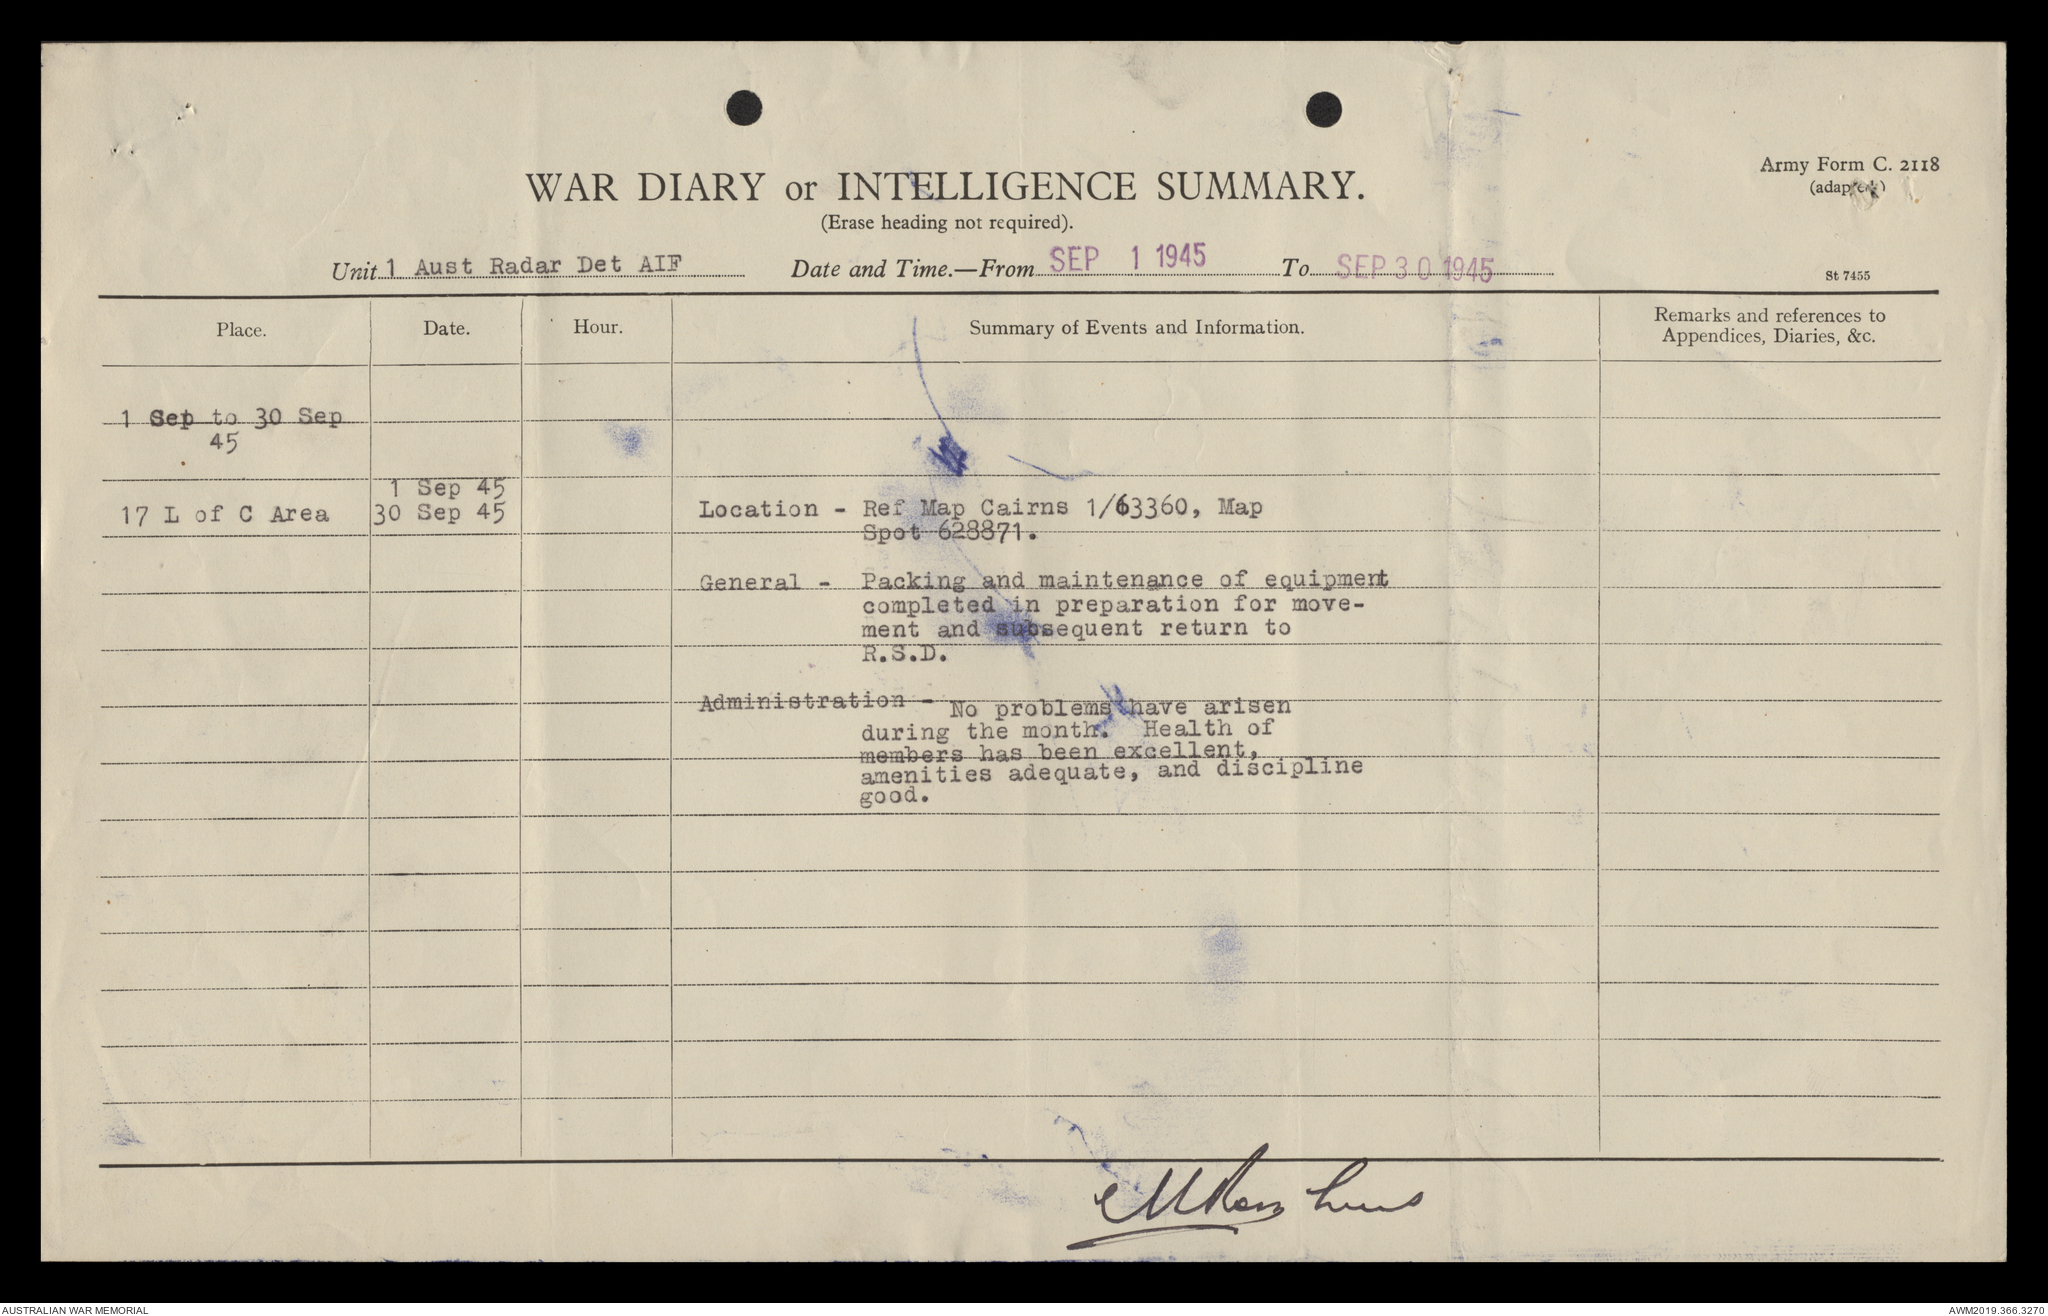 Army Form C. 2118
(adapted)
WAR DIARY or INTELLIGENCE SUMMARY.
(Erase heading not required).
Unit 1 Aust Radar Det AIF Date and Time.—From SEP 1 1945 To SEP 30 1945
St 7455
Place. Date. Hour. Summary of Events and Information. Remarks and references to
Appendices, Diaries, &c.
1 Sep to 30 Sep
45
1 Sep 45
17 L of C Area 30 Sep 45 Location - Ref Map Cairns 1/63360, Map
Spot 628871.
General - Packing and maintenance of equipment
completed in preparation for move-
ment and subsequent return to
R.S.D.
Administration - No problems have arisen
during the month. Health of
members has been excellent,
amenities adequate, and discipline
good.
AUSTRALIAN WAR MEMORIAL
AWM2019.366.3270